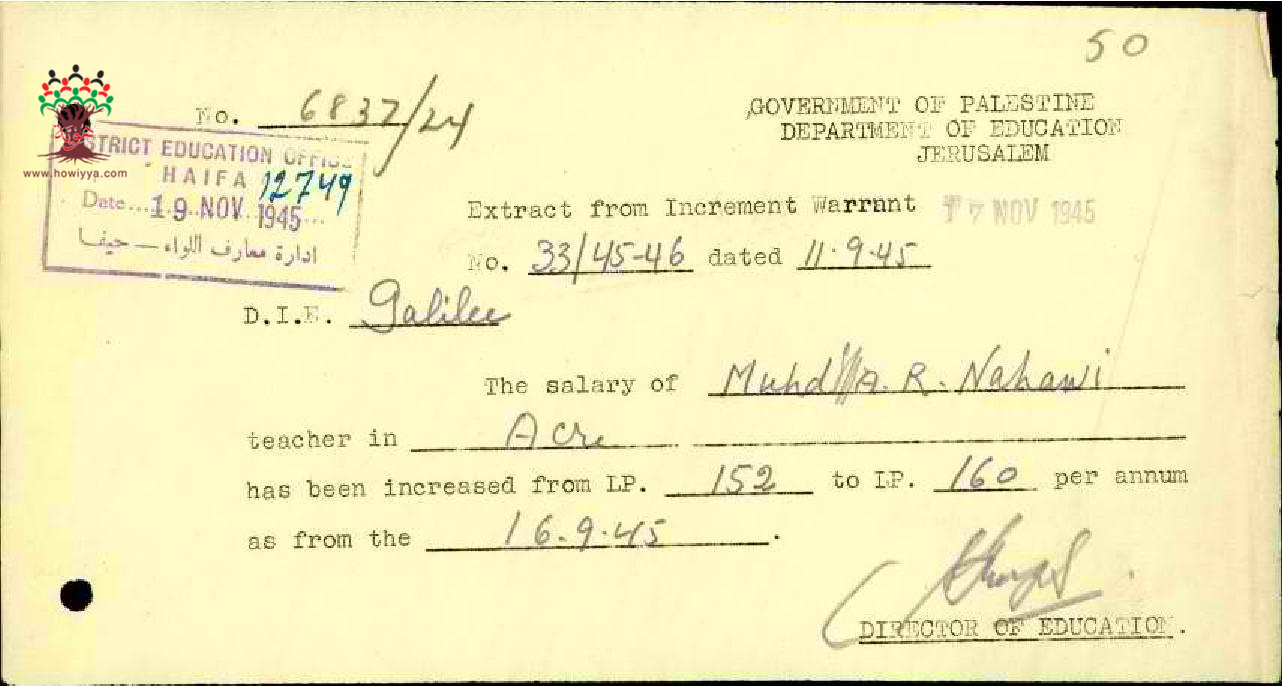 50
No. 6837/24
GOVERNMENT OF PALESTINE
DEPARTMENT OF EDUCATION
JERUSALEM
www.howiyya.com
STRICT EDUCATION OFFICE
HAIFA 12749
Date... 19 NOV 1945...
ادارة معارف اللواء — حيفا
Extract from Increment Warrant 17 NOV 1945
No. 33/45-46 dated 11.9.45
D.I.E. Galilee
The salary of Muhd A. R. Nahawi
teacher in Acre
has been increased from LP. 152 to LP. 160 per annum
as from the 16.9.45.
DIRECTOR OF EDUCATION.